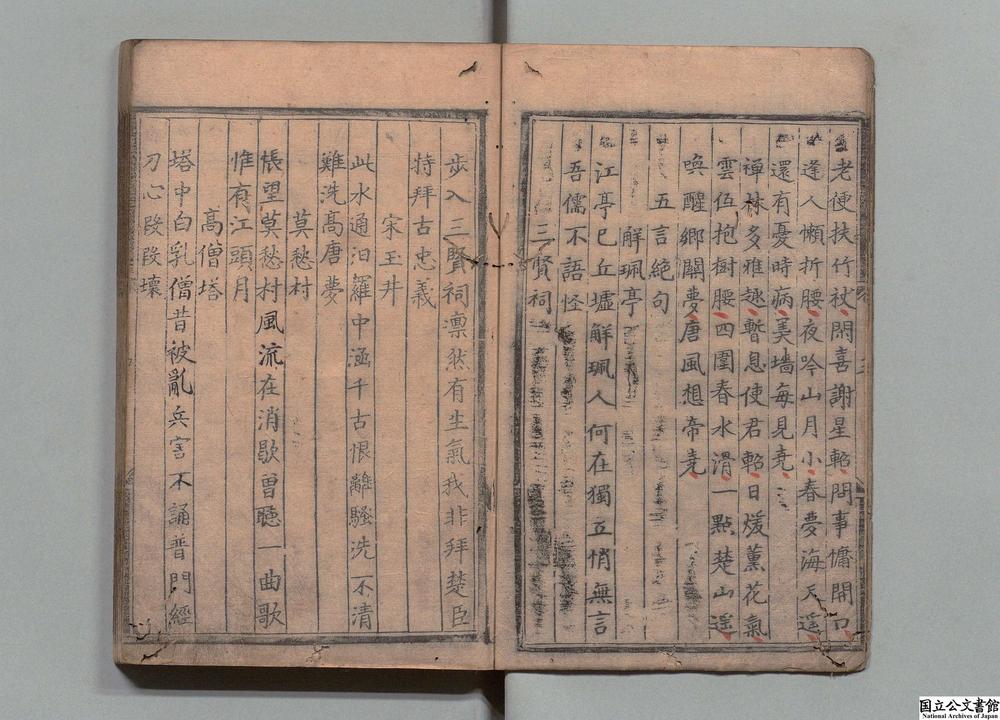 老便扶竹杖閑喜謝星軺問事慵開口
逢人懶折腰夜吟山月小春夢海天遥
還有憂時病羙墻每見堯
禅林多雅趣暫息使君軺日煖薫花氣
雲伍抱樹腰四圍春水滑一點楚山遥
喚醒鄉關夢唐風想帝堯
五言絶句
解珮亭
江亭巳丘墟解珮人何在獨立悄無言
吾儒不語怪
三賢祠
步入三賢祠凛然有生氣我非拜楚臣
特拜古忠義
宋玉井
此水通汨羅中涵千古恨離騷洗不清
難洗髙唐夢
莫愁村
悵望莫愁村風流在消歇曽聴一曲歌
惟有江頭月
髙僧塔
塔中白乳僧昔被亂兵害不誦普門經
刀心段段壞
国立公文書館
National Archives of Japan